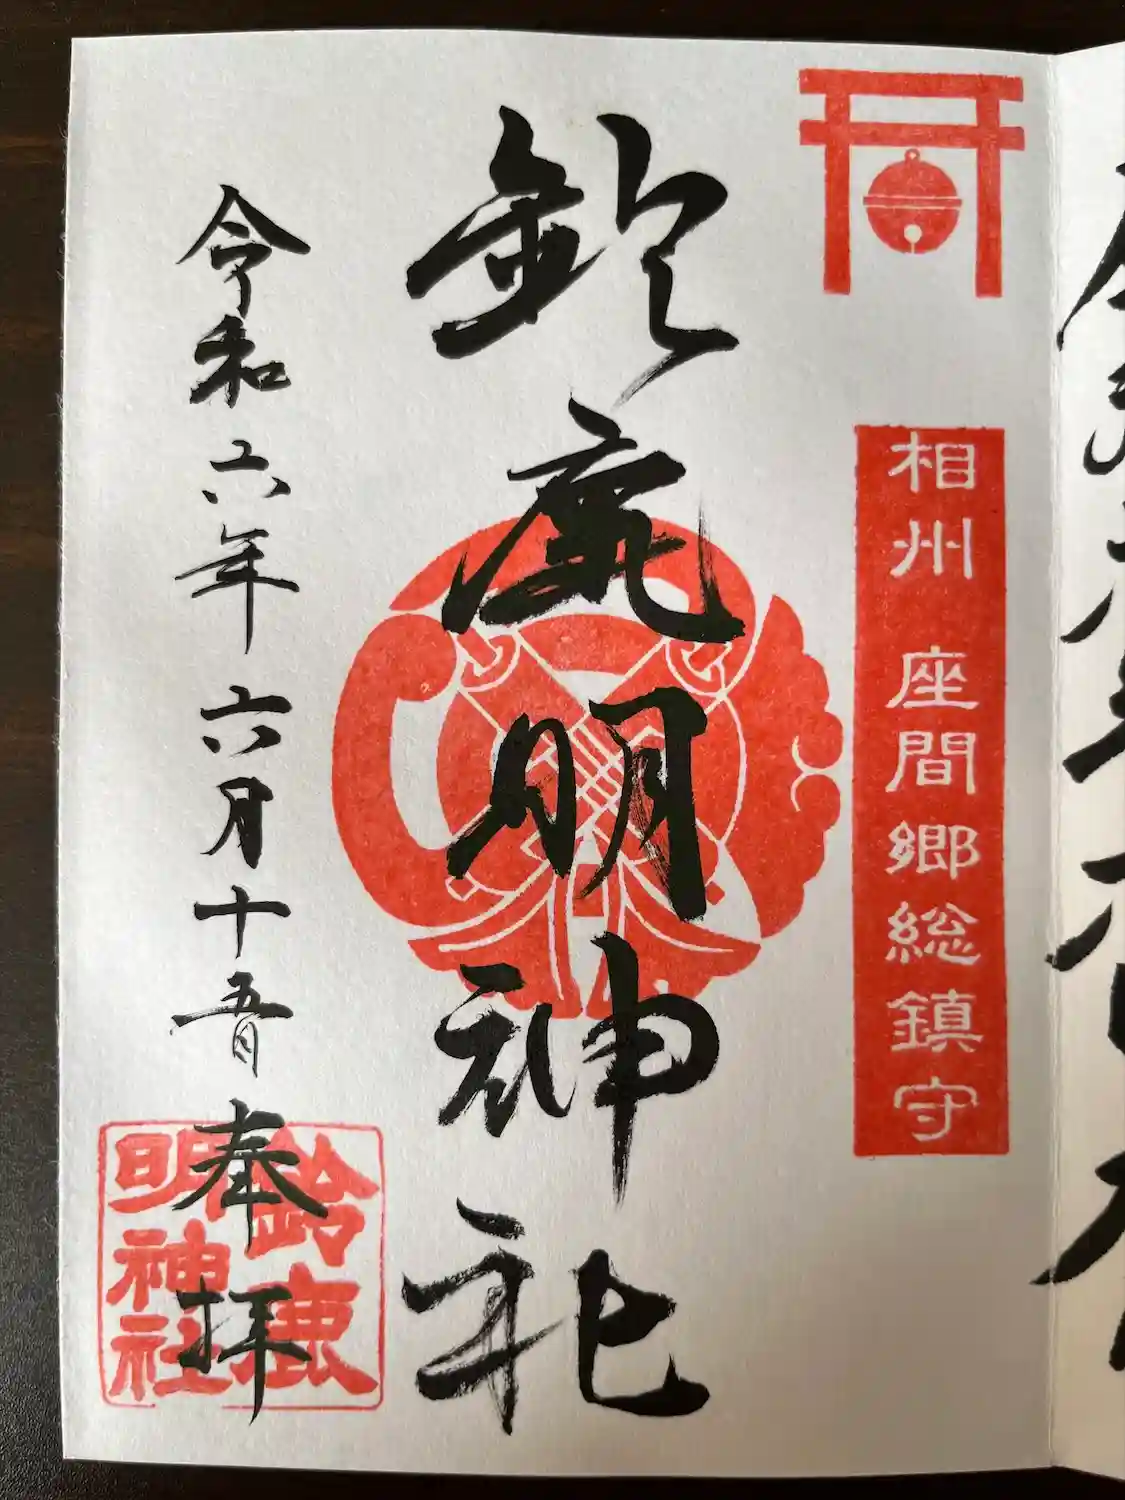 相州座間郷総鎮守
鈴鹿明神社
令和六年六月十五日奉拝
鈴鹿
明神社